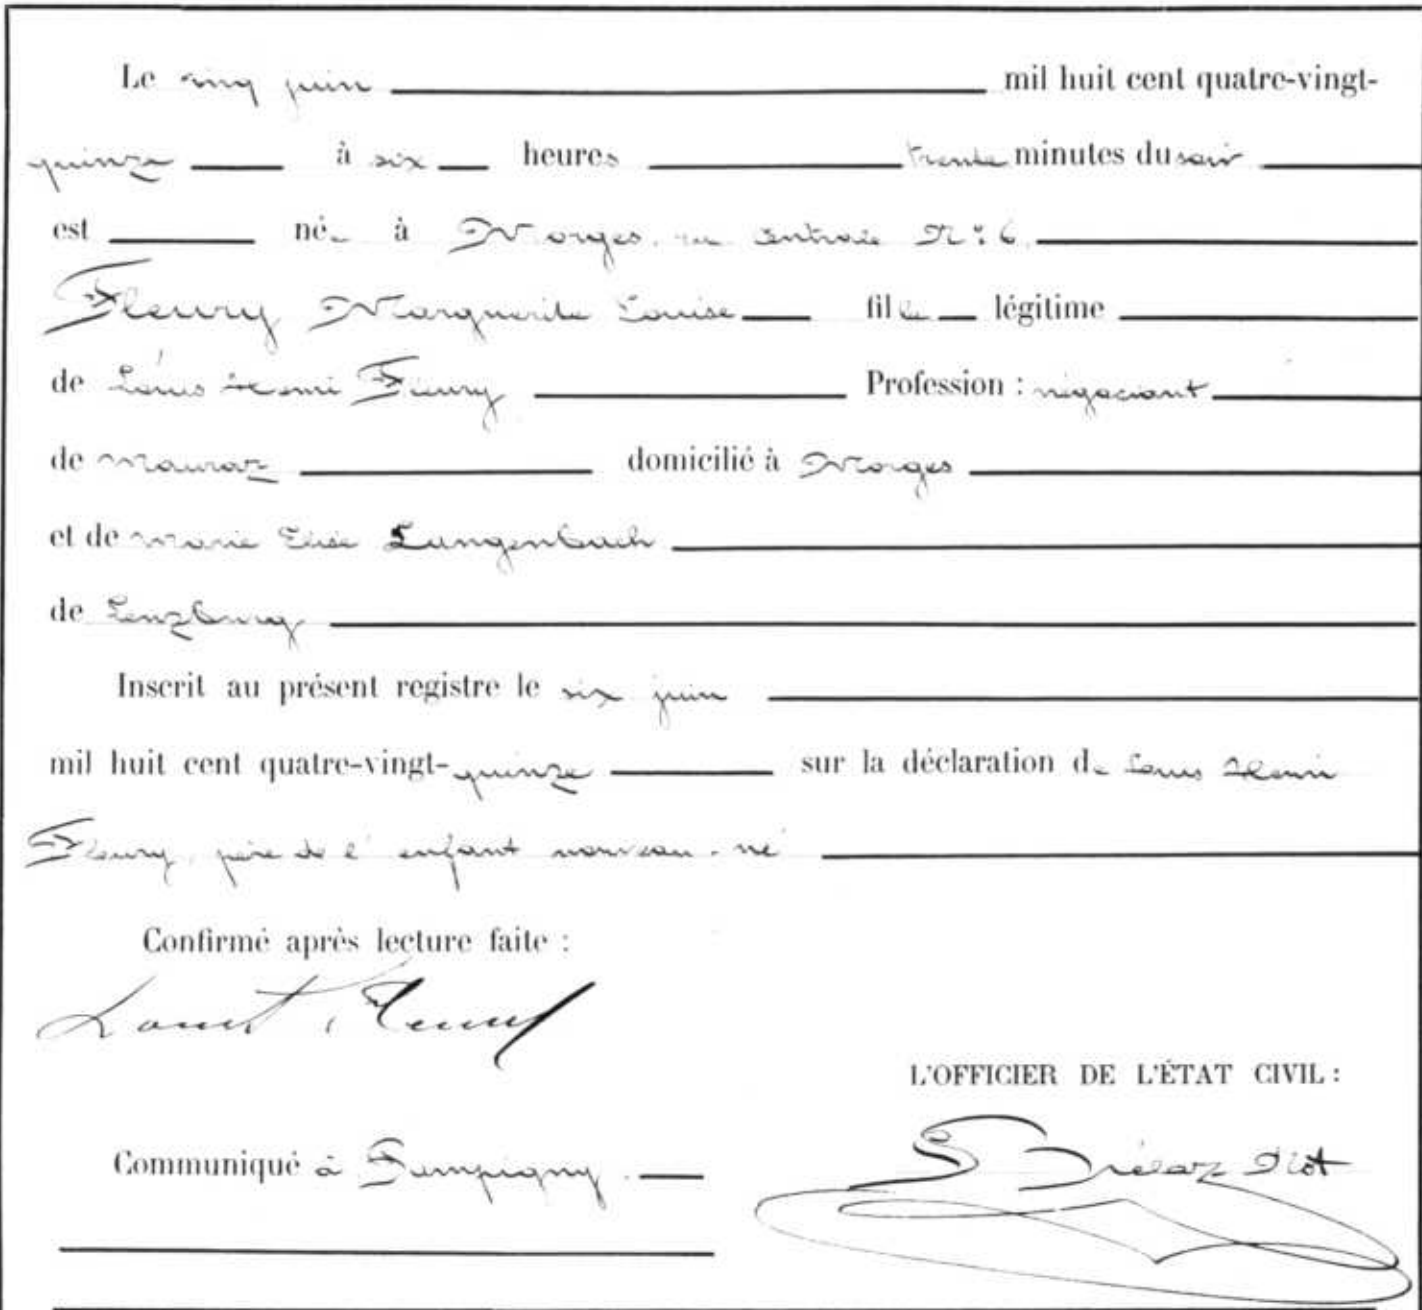 Le cinq juin mil huit cent quatre-vingt-
quinze à six heures trente minutes du soir
est née à Morges, rue Centrale No 6.
Fleury Marguerite Louise fille légitime
de Louis Henri Fleury Profession : négociant
de Mauraz domicilié à Morges
et de Marie Elise Langenbach
de Lenzburg
Inscrit au présent registre le six juin
mil huit cent quatre-vingt-quinze sur la déclaration de Louis Henri
Fleury, père de l'enfant nouveau-né
Confirmé après lecture faite :
Louis Fleury
L'OFFICIER DE L'ÉTAT CIVIL :
Communiqué à Pampigny.
Not